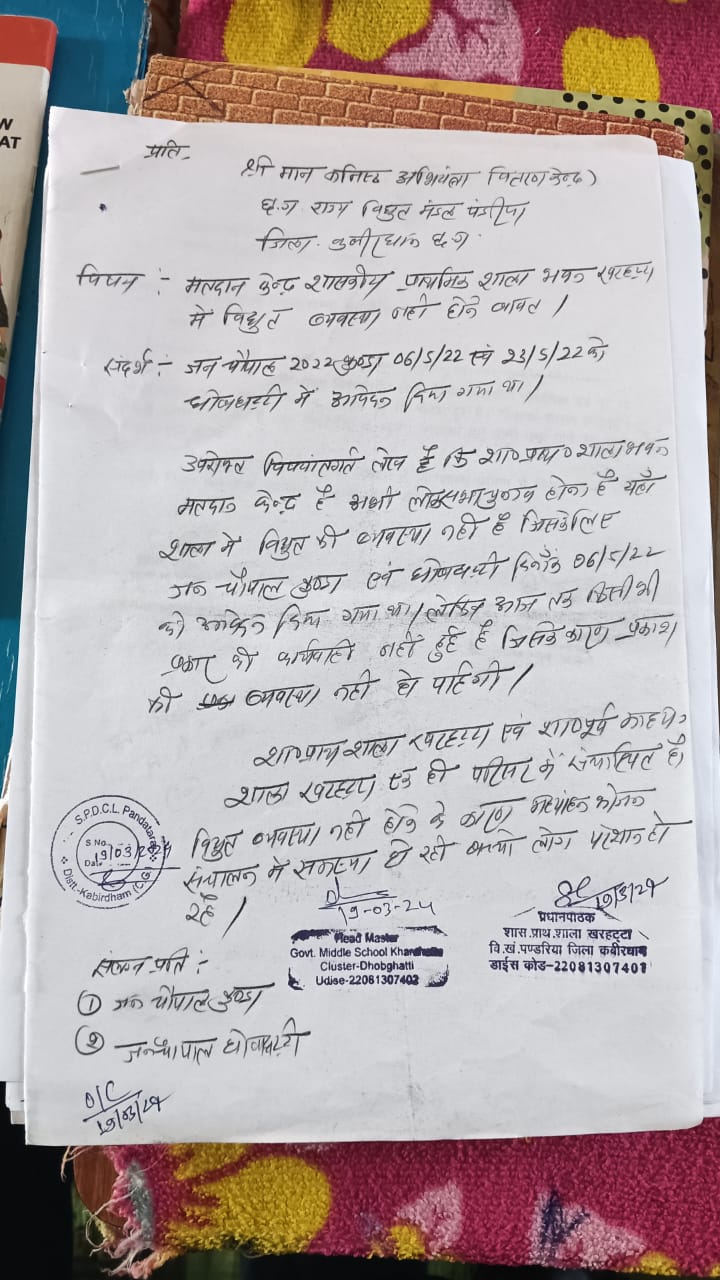 प्रति-
श्री मान कनिष्ठ अभियंता वितरण केन्द्र)
छ.ग. राज्य विद्युत मंडल पंडरिया
जिला- कबीरधाम छ.ग.
विषय :- मतदान केन्द्र शासकीय प्राथमिक शाला भवन खरहट्टा
में विद्युत व्यवस्था नहीं होने बाबत /
संदर्भ :- जन चौपाल 2022 कुण्डा 06/5/22 एवं 23/5/22 को
धोबघट्टी में आवेदन दिया गया था /
उपरोक्त विषयांतर्गत लेख है कि शा०प्राथ० शाला भवन
मतदान केन्द्र है अभी लोकसभा चुनाव होना है यहाँ
शाला में विद्युत की व्यवस्था नहीं है जिसके लिए
जन चौपाल कुण्डा एवं धोबघट्टी दिनाँक 06/5/22
को आवेदन दिया गया था / लेकिन आज तक किसी भी
प्रकार की कार्यवाही नहीं हुई है जिसके कारण प्रकाश
की व्यवस्था नहीं हो पाहिगी /
शा०प्राथ शाला खरहट्टा एवं शा०पूर्व माध्य०
शाला खरहट्टा एक ही परिसर में संचालित है।
विद्युत व्यवस्था नहीं होने के कारण मध्यांहन भोजन
संचालन में समस्या हो रही बच्चे लोग परेशान हो
रहे /
S.P.D.C.L. Pandataraee
S.No.
Date 19/03/2024
Distt.-Kabirdham (C.G)
19-03-24
Head Master
Govt. Middle School Kharhatta
Cluster-Dhobghatti
Udise-22081307402
19/3/24
प्रधानपाठक
शास.प्राथ.शाला खरहट्टा
वि.खं.पण्डरिया जिला कबीरधाम
डाईस कोड-22081307401
संलग्न प्रति :-
① जन चौपाल कुण्डा
② जनचौपाल धोबघट्टी
O/C
19/03/24